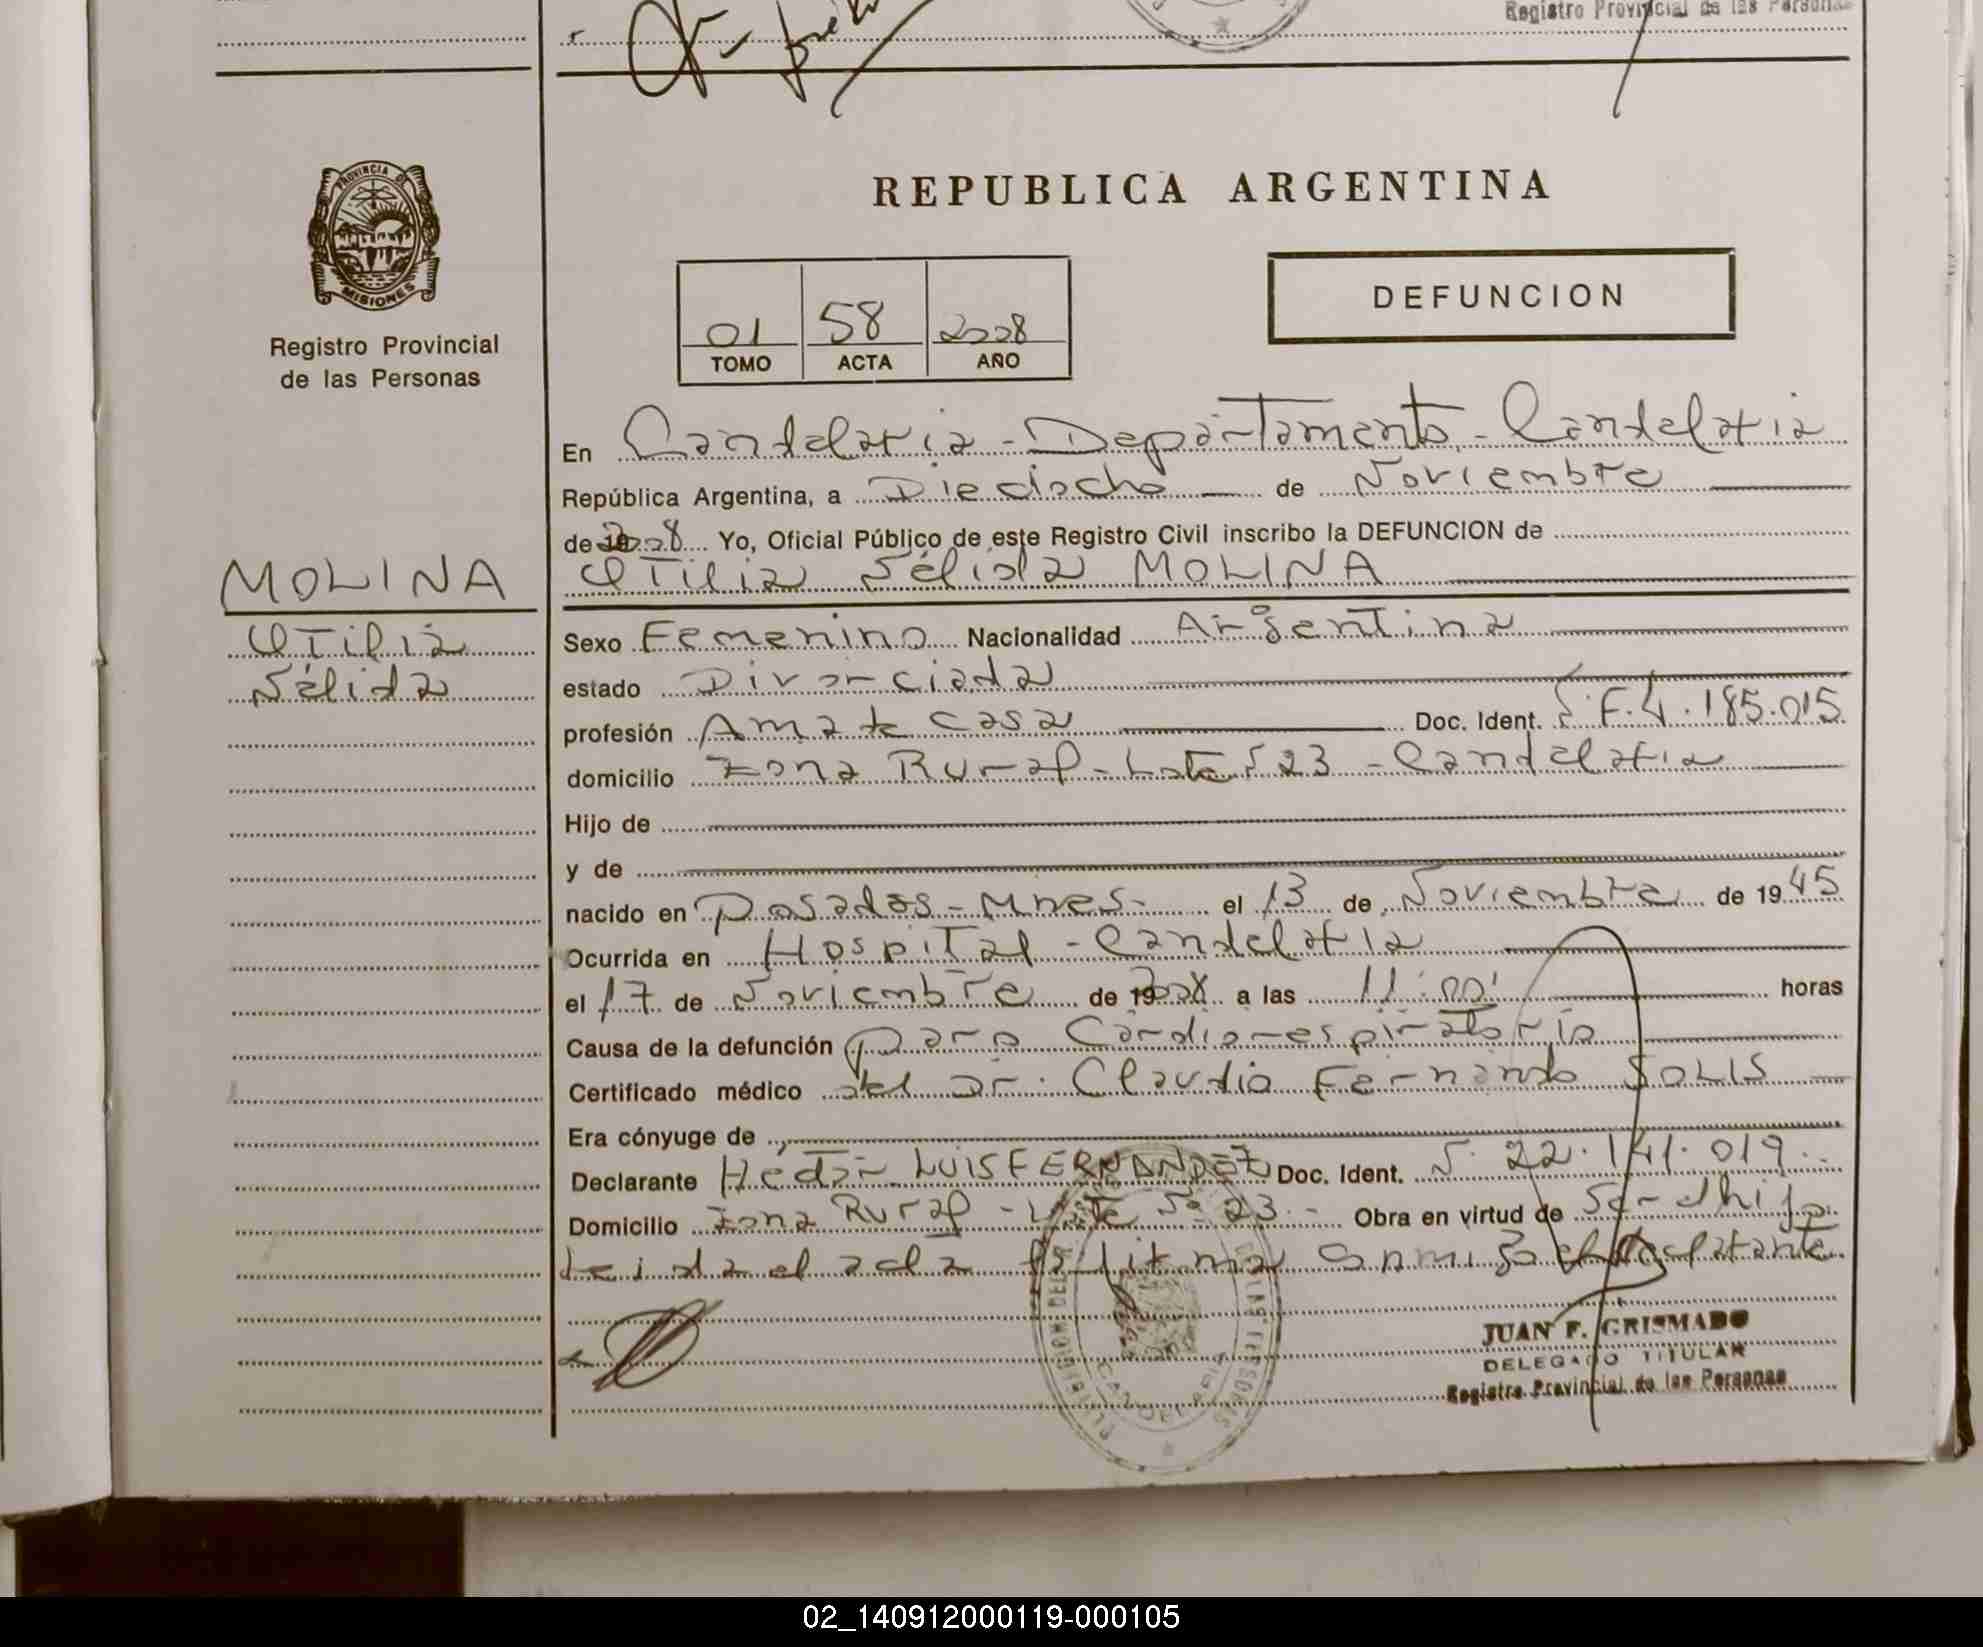 Registro Provincial de las Personas
PROVINCIA DE
MISIONES
Registro Provincial
de las Personas
REPUBLICA ARGENTINA
01 58 2008
TOMO ACTA AÑO
DEFUNCION
En Candelaria - Departamento - Candelaria
República Argentina, a Dieciocho de Noviembre
de 2008 Yo, Oficial Público de este Registro Civil inscribo la DEFUNCION de
MOLINA
Otilia Nélida MOLINA
Otilia
Nélida
Sexo Femenino Nacionalidad Argentina
estado Divorciada
profesión Ama de casa Doc. Ident. F. 4.185.015
domicilio Zona Rural - Lote Nº 23 - Candelaria
Hijo de
y de
nacido en Posadas - Mnes - el 13 de Noviembre de 1945
Ocurrida en Hospital - Candelaria
el 17 de Noviembre de 2008 a las 11:00' horas
Causa de la defunción paro Cardiorespiratorio
Certificado médico del Dr. Claudio Fernando SOLIS
Era cónyuge de
Declarante Héctor LUIS FERNANDEZ Doc. Ident. Nº 22.141.019
Domicilio Zona Rural - Lote Nº 23 - Obra en virtud de Ser el hijo
Leida el acta la firma conmigo el declarante
JUAN F. GRISMADO
DELEGADO TITULAR
Registro Provincial de las Personas
02_140912000119-000105